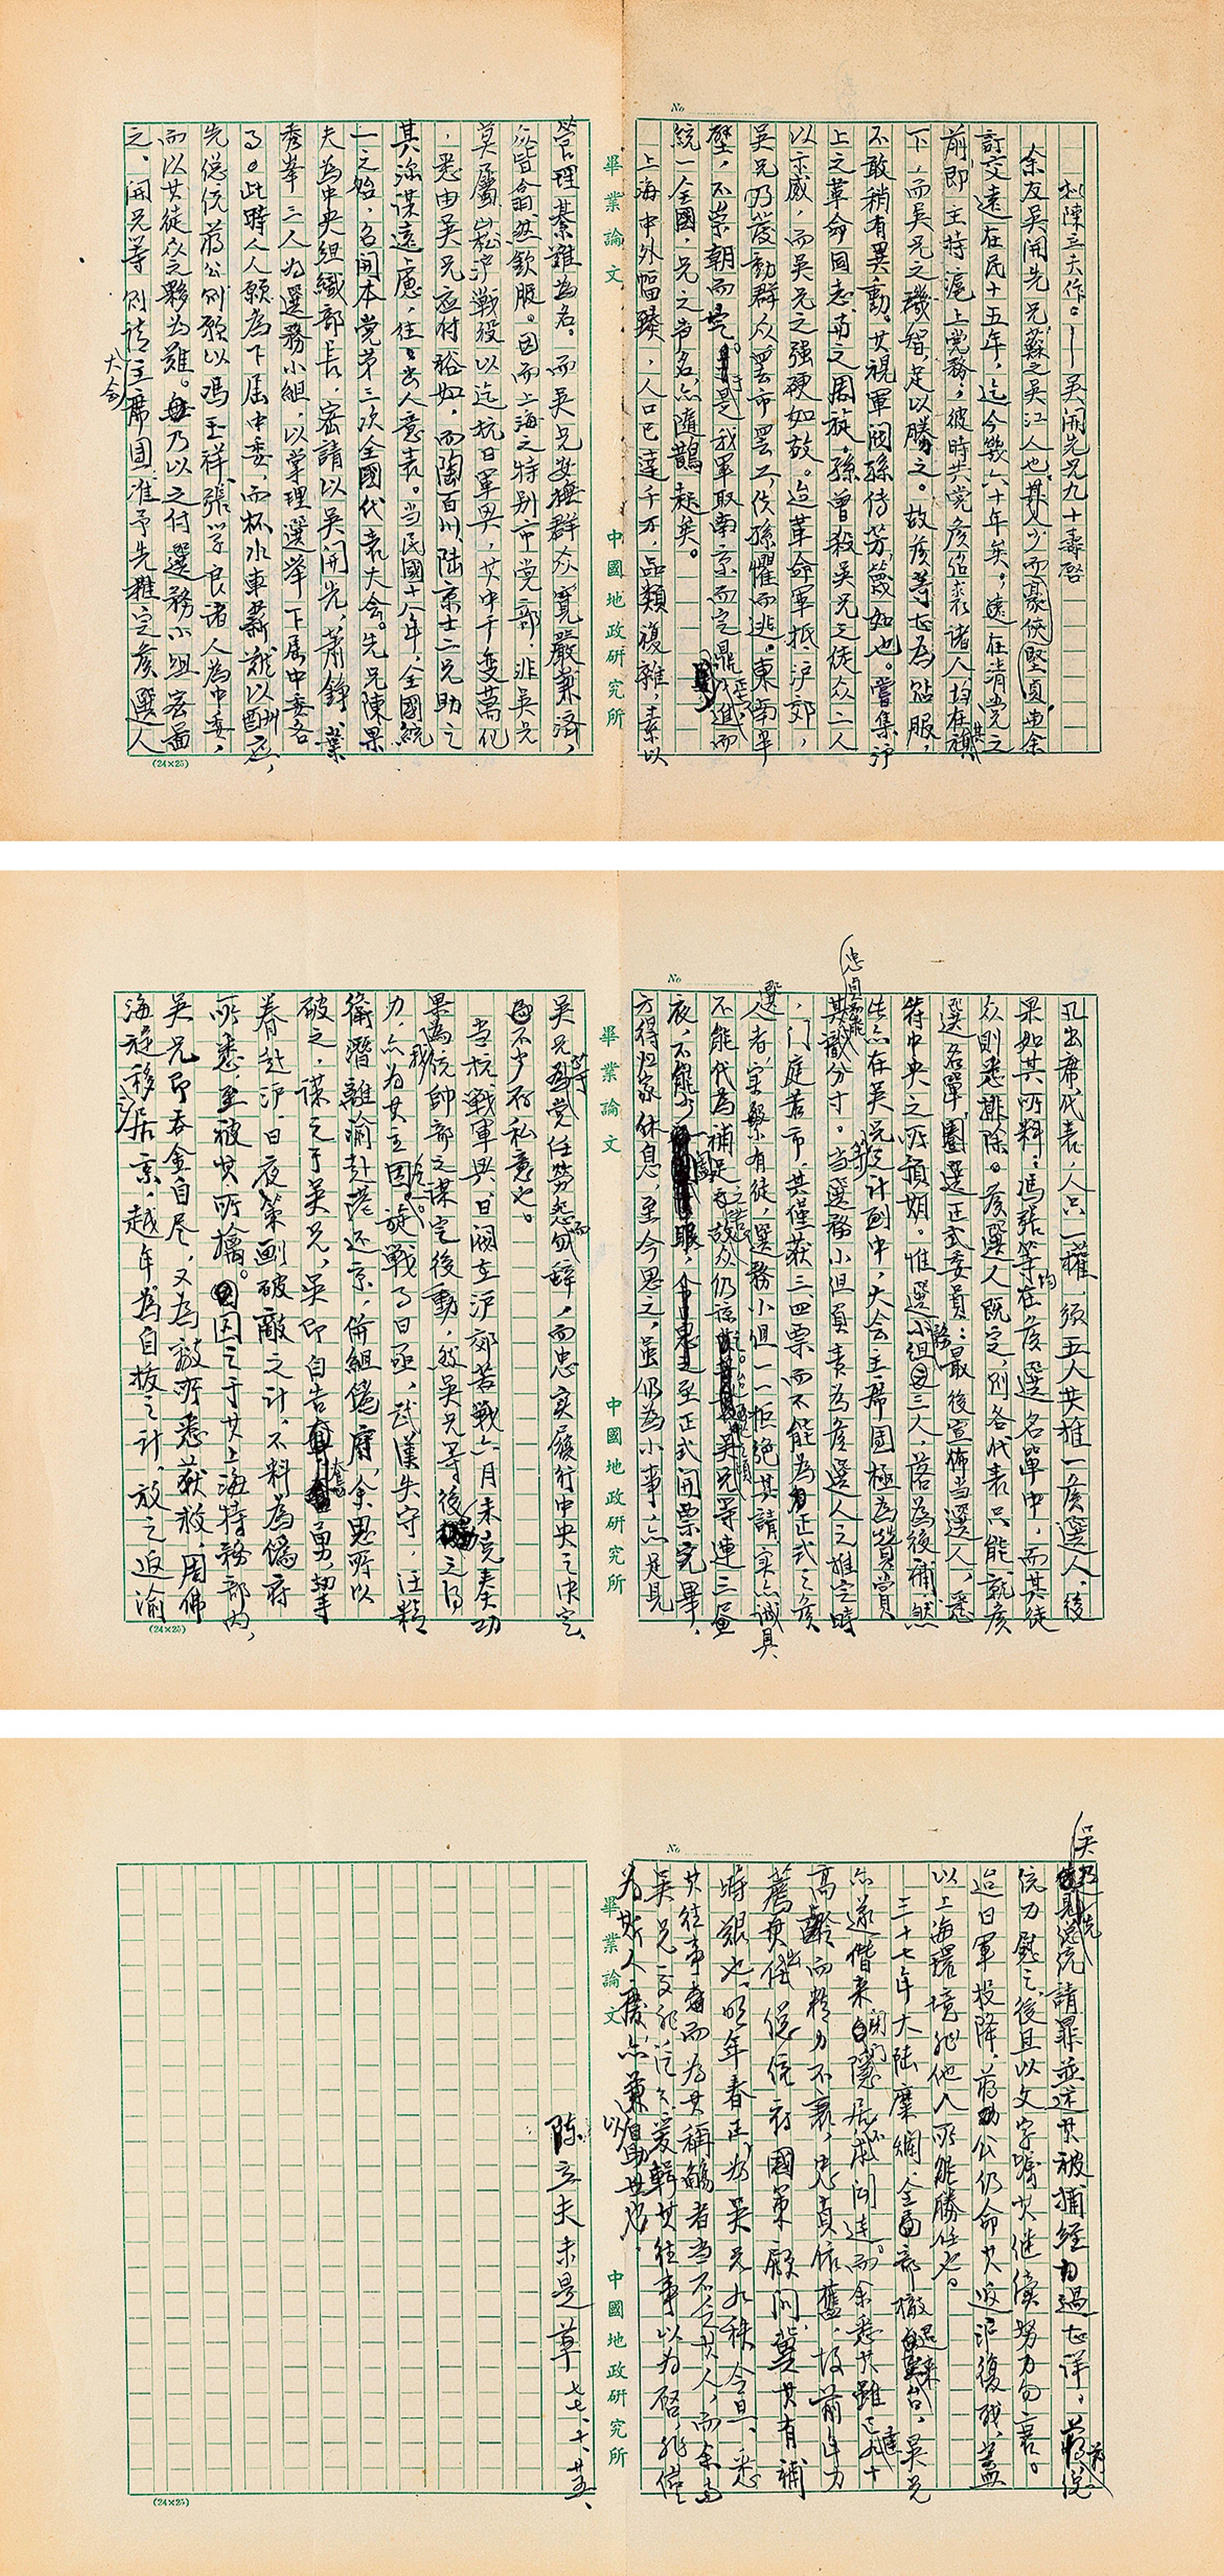 擬陳立夫作。——吳開先兄九十壽啓
余友吳開先兄,蘇之吳江人也,其人少而豪俠堅貞,與余
訂交遠在民十五年,迄今幾六十年矣。遠在清党之
前,即主持滬上党務,彼時共党彥詔裘諸人均在其
下,而吳兄之機智,足以勝之。故彥等亦為貼服,
不敢稍有異動。其視軍閥孫傳芳,蔑如也。嘗集沪
上之革命同志与之周旋,孫曾殺吳兄之徒众二人
以示威,而吳兄之强硬如故。迨革命軍抵沪郊,
吳兄乃发動群众罢市罢工,使孫懼而逃。東南半
壁,不崇朝而定。于是我軍取南京而定鼎,進而
統一全國,兄之声名亦隨鵲起矣。
上海中外幅輳,人口已達千万,品類複雜,素以
管理綦難為名。而吳兄安撫群众寬嚴兼济,
众皆翕然欽服。因而上海之特別市党部,非吳兄
莫屬。淞沪戰役以迄抗日軍興,其中千变萬化
,悉由吳兄应付裕如,而陶百川、陆京士二兄助之
其深謀遠慮,往往出人意表。当民國十八年,全國統
一之始,召開本党第三次全國代表大会。先兄陳果
夫為中央組織部長,密請以吳開先,蕭錚,葉
秀峯三人為選務小組,以掌理選举下届中委各
事。此時人人願為下届中委,而杯水車薪難以酬应,
先總統蔣公刻願以馮玉祥張学良諸人為中委,
而以其徒众之夥為難。乃以之付選務小组密画
之。開先等則請大会主席团准予先推定候選人
凡出席代表,人只一權,須五人共推一候選人。後
果如其所料,馮張等均在候選名單中,而其徒
众則悉排除。候選人既定,則各代表只能就候
選名單圈選正式委員;最後宣佈当選人,悉
符中央之所預期。惟選務小组三人,落為後補,然
此亦在吳兄等計劃中,大会主席团極為贊賞
其忠貞職分寸。当選務小组負責為候選人之推定時
,门庭若市,其僅获三四票而不能為正式之候
選人者,实繁有徒,選務小组一一拒绝其請,实亦誠具
不能代為補足之苦,故众仍諒之。吳兄等連三昼
夜,不能少眠,至正式開票完畢,
方得返家休息,至今思之,虽仍為小事,亦足見
吳兄對党任勞任怨而忠实履行中央之决定,
不少存私意也。
当抗戰軍興,日閥在沪郊苦戰六月未克奏功
果為我統帥部之謀定後動,然吳兄等後之助
力,亦為其主因。旋戰事日亟,武漢失守,汪精
衛潛離渝赴港还京,併組偽府,余思所以
破之,谋之于吳兄,吳即自告奮勇,挈
眷赴沪,日夜策画破敵之計,不料為偽府
所悉,至被其所擒。囚之于其上海特務部内,
吳兄即吞金自尽,又為敵所悉获救,周佛
海旋移居京,越年為自拔之計,放之返渝
吳乃見總統請罪並述其被捕經過甚详,蔣總
統力慰之,後且以文字嘱其继續努力勿衰。
迨日軍投降,蔣公仍命其返沪復职,蓋
以上海環境非他人所能勝任也。
三十七年大陆糜爛,全面部撤退来台,吳兄
亦遂偕来,閉门隱居,不求闻達。而余悉其雖已九十
高齡,而精力不衰,忠貞依舊,故前年力
薦其出任總統府國策顧问,冀其有補
時艱也。明年春正,為吳兄九秩令旦,悉
其往事而為其稱觴者当不乏其人,而余与
吳兄交非泛泛,爰輯其往事以為啓,非僅
為斯人慶,亦兼以自勗其也。
陳立夫未是草 七七、十、廿五、
No
畢業論文
中國地政研究所
(24×25)
No
畢業論文
中國地政研究所
(24×25)
No
畢業論文
中國地政研究所
(24×25)